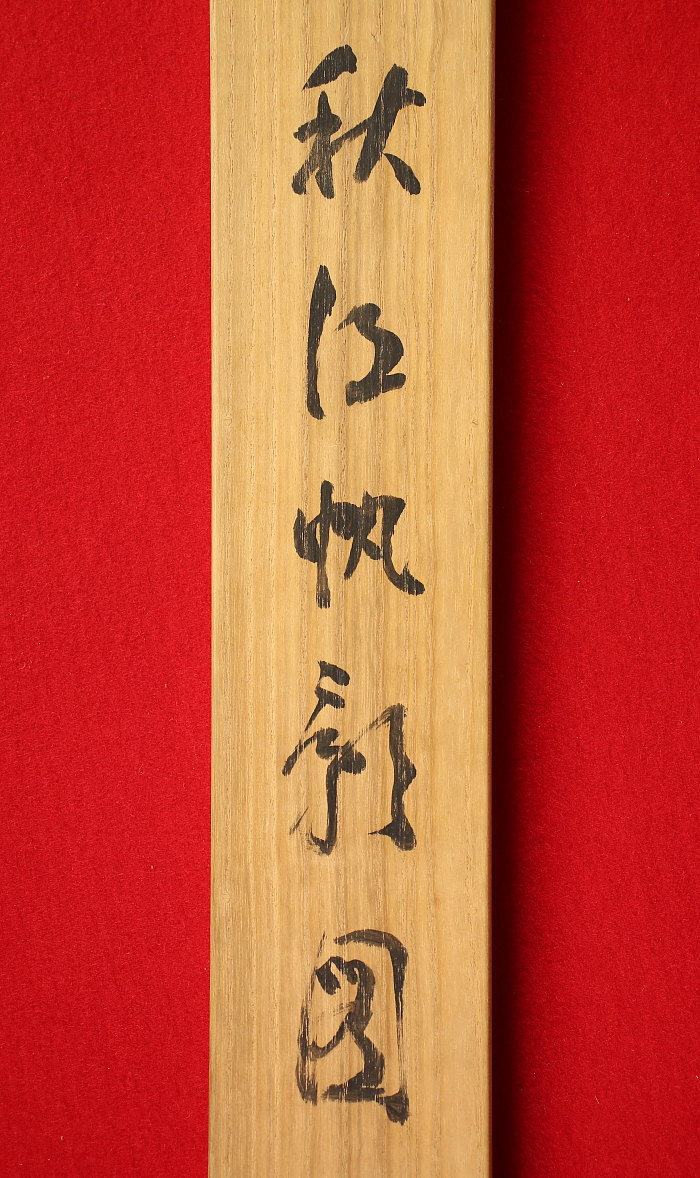 秋江帆影圖